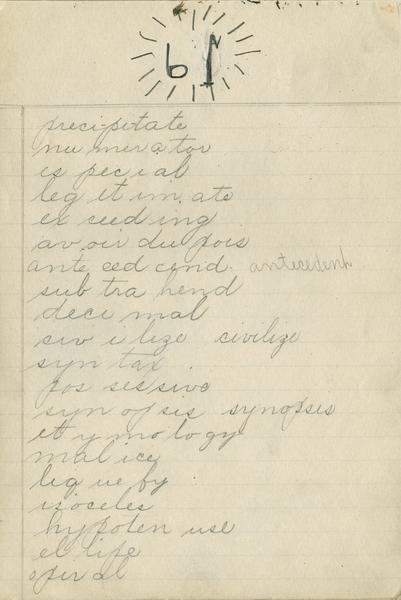 61
precipitate
nu mer a tor
es pecial
leg it im ate
ex seed ing
av oir du pois
ante sed cend antecedent
sub tra hend
deci mal
siv i lize civilize
syn tax
pos ses sive
syn op sis synopsis
et y mo lo gy
mal ice
liq ue fy
isoceles
hypoten use
el life
spir al